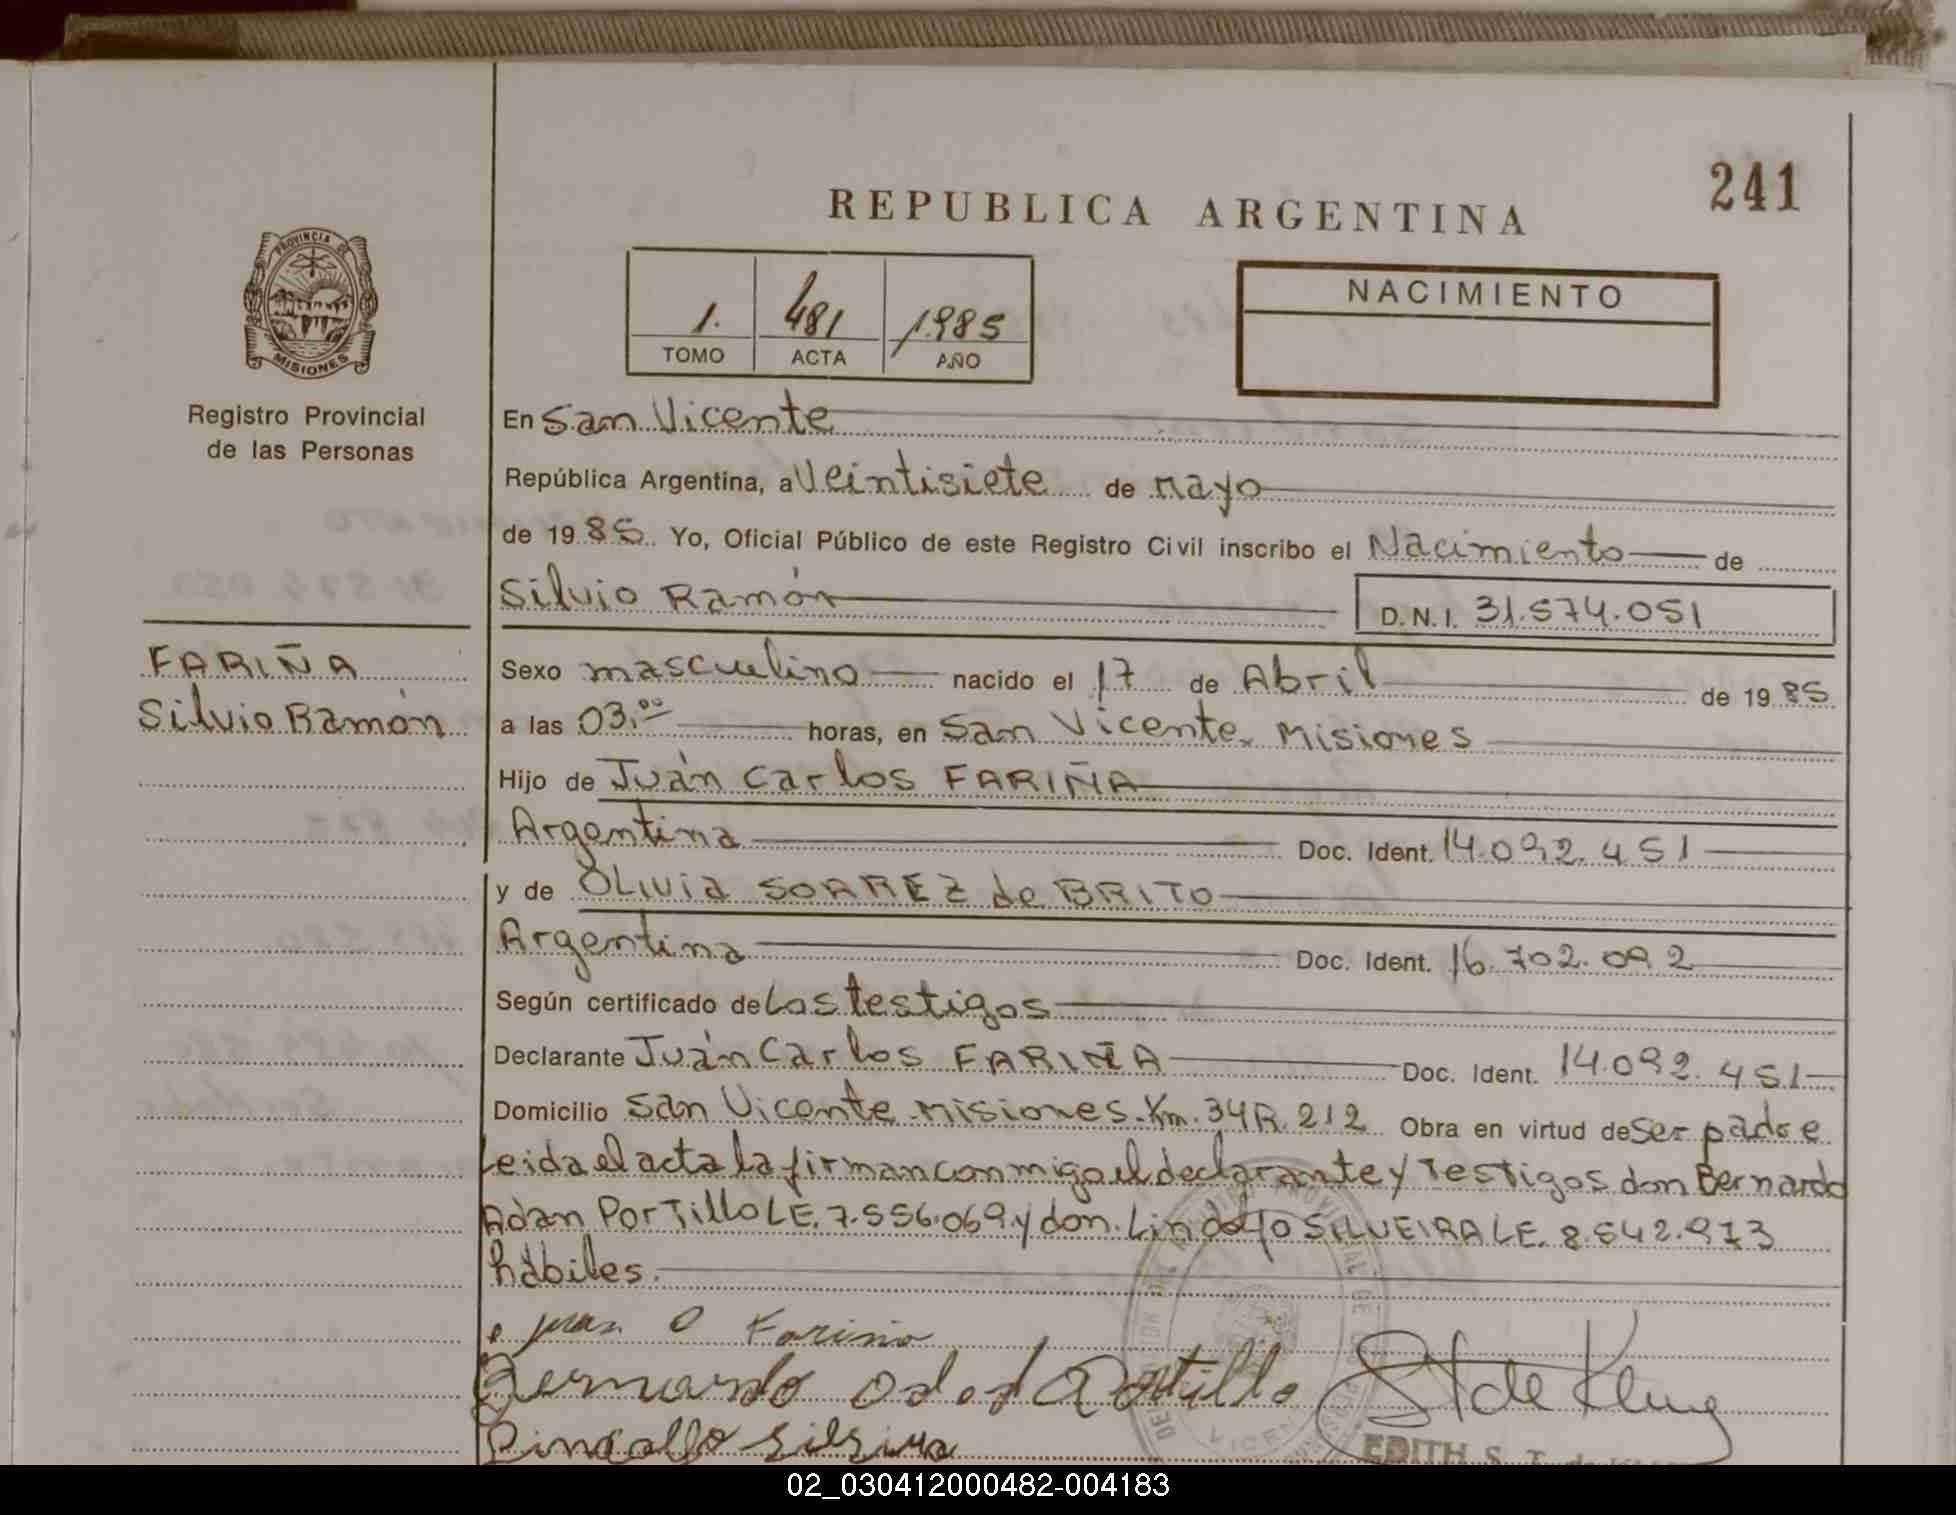 241
REPUBLICA ARGENTINA
PROVINCIA DE
MISIONES
Registro Provincial
de las Personas
1. 481 1985
TOMO ACTA AÑO
NACIMIENTO
En San Vicente
República Argentina, a Veintisiete de mayo
de 19 85 Yo, Oficial Público de este Registro Civil inscribo el Nacimiento de
Silvio Ramón D.N.I. 31.574.051
FARIÑA
Silvio Ramón
Sexo masculino nacido el 17 de Abril de 19 85
a las 03.00 horas, en San Vicente Misiones
Hijo de Juán Carlos FARIÑA
Argentina Doc. Ident. 14.092.451
y de OLIVIA SORREZ de BRITO
Argentina Doc. Ident. 16.702.092
Según certificado de Los testigos
Declarante Juán Carlos FARIÑA Doc. Ident. 14.092.451
Domicilio San Vicente Misiones. Km. 34 R. 212 Obra en virtud de ser padre
Leida el acta la firman conmigo el declarante y Testigos don Bernardo
Adán Portillo LE. 7.556.069. y don. Lindolfo SILVEIRA LE. 8.542.973
hábiles.
Juan C Farinia
Bernardo Portillo
St de Klug
EDITH S. T. de
02_030412000482-004183